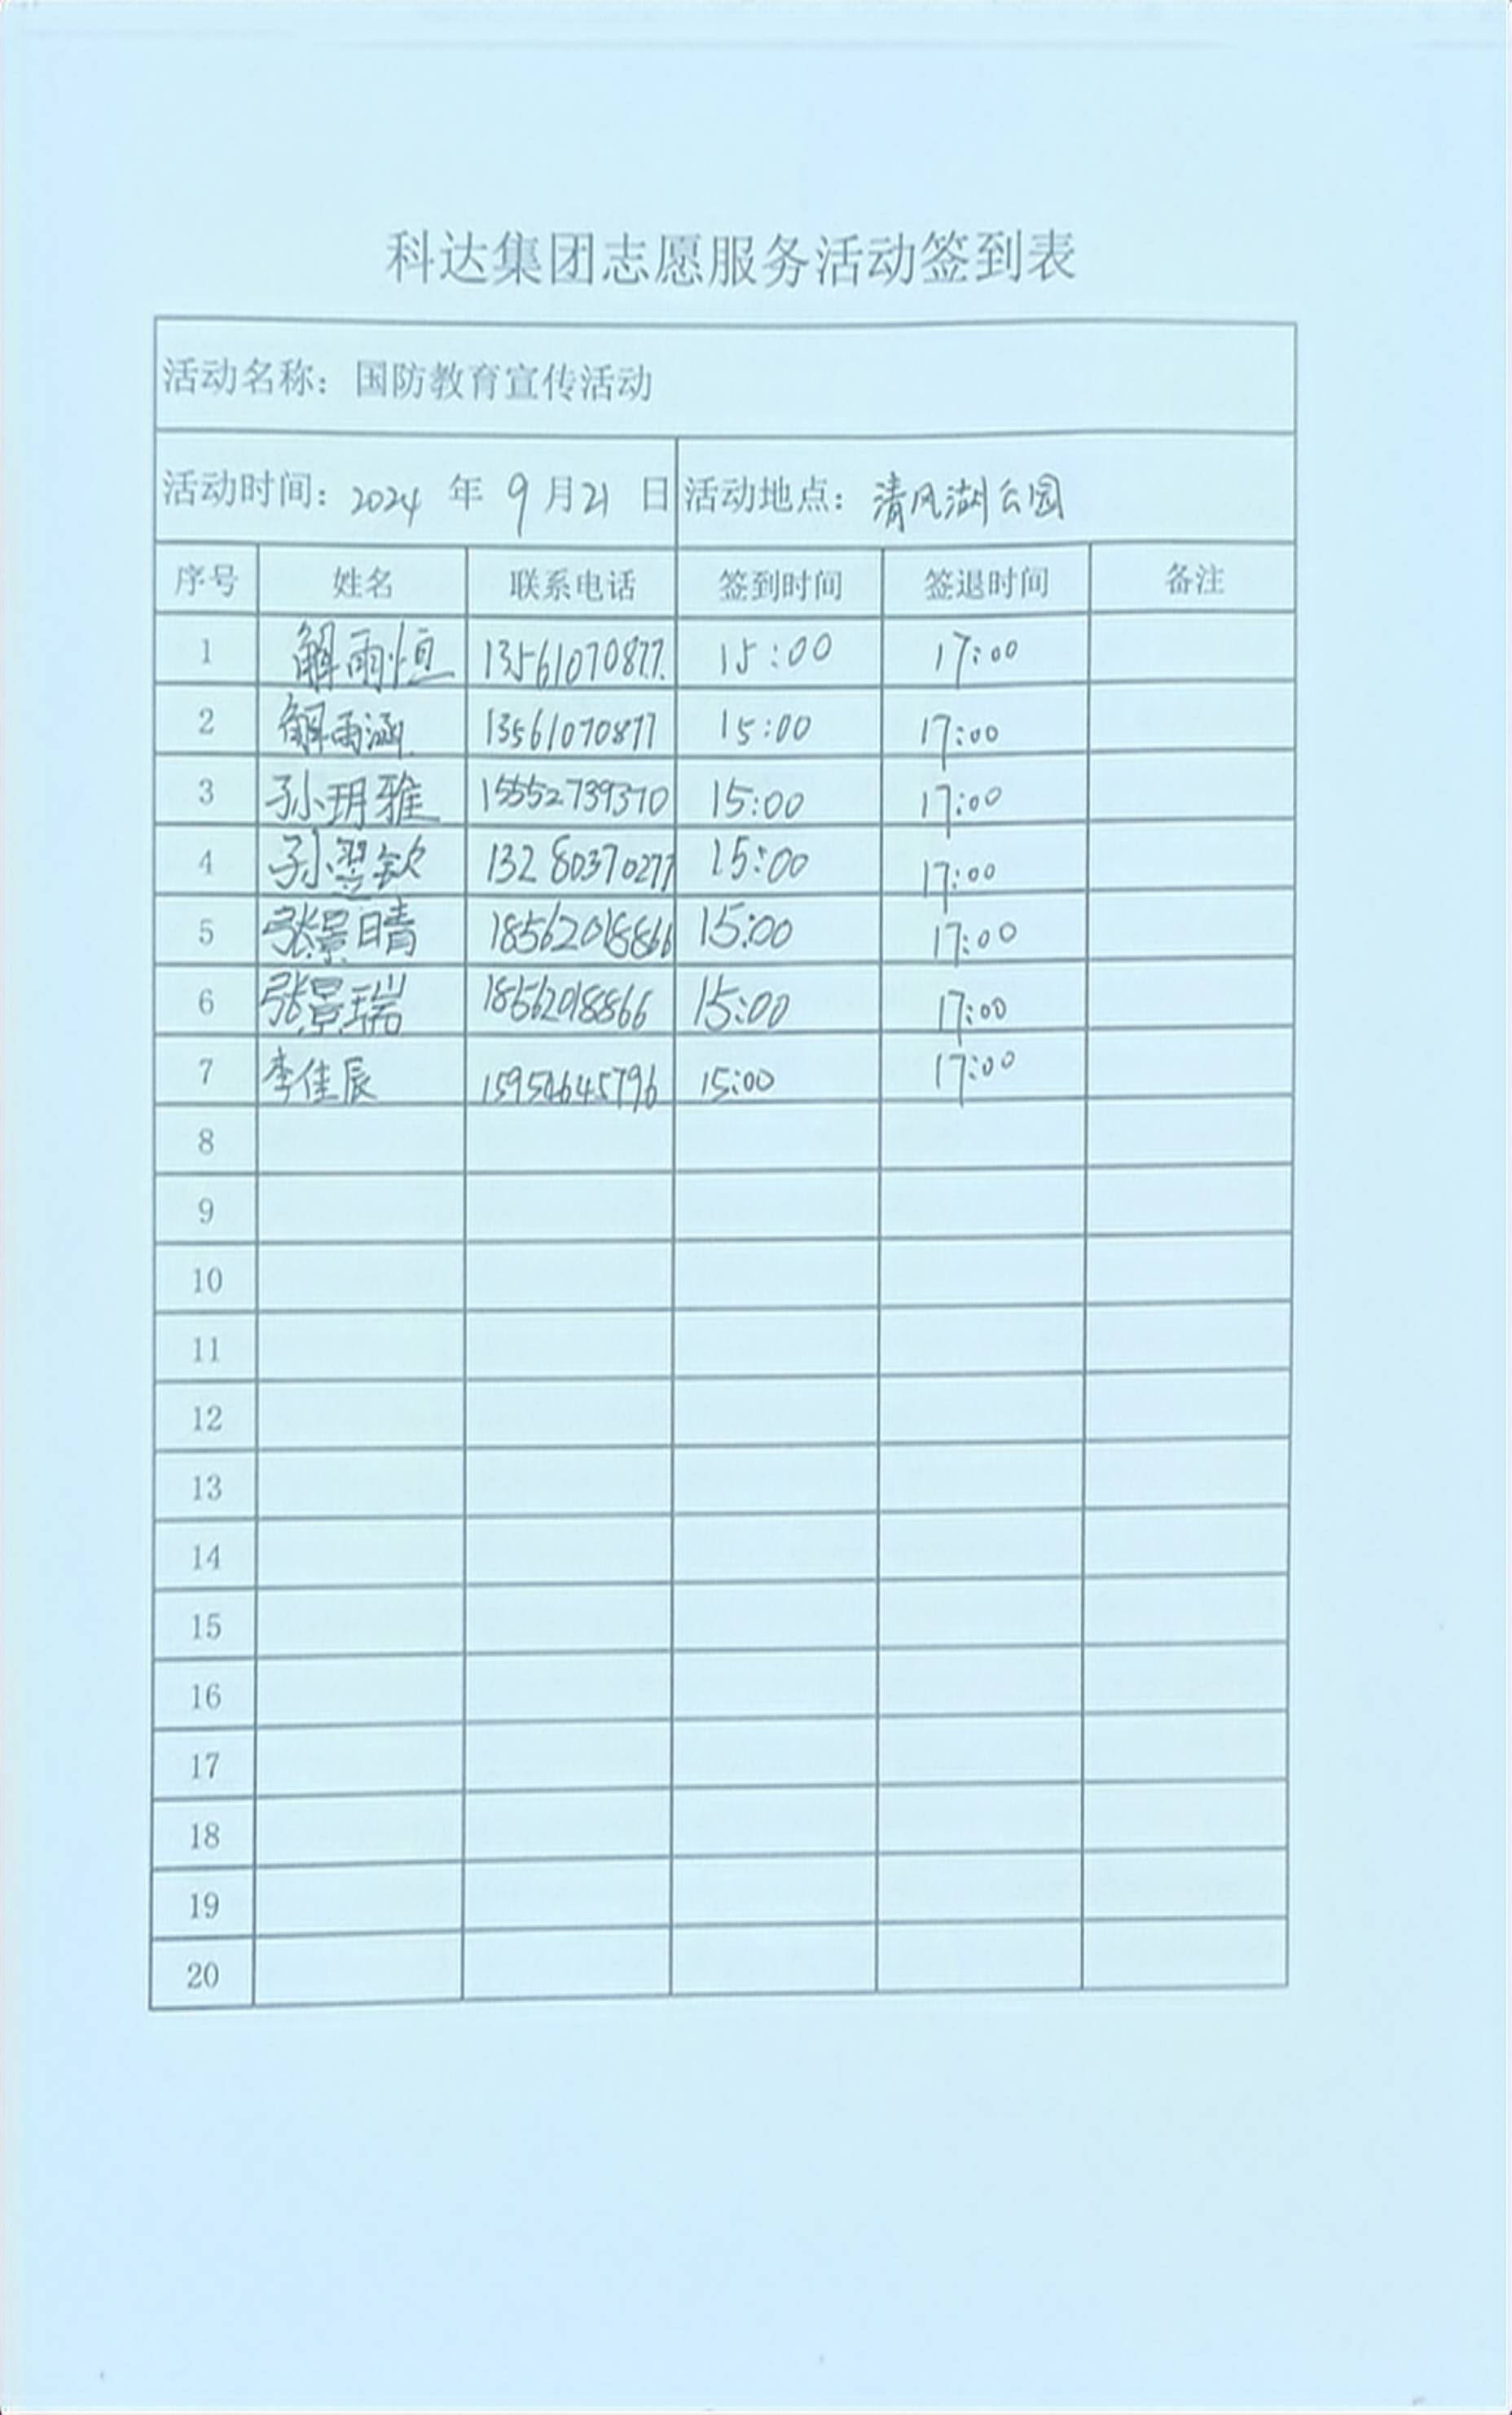 科达集团志愿服务活动签到表
活动名称：国防教育宣传活动
活动时间：2024 年 9 月 21 日 活动地点：清风湖公园
序号 姓名 联系电话 签到时间 签退时间 备注
1 解雨恒 13561070877. 15:00 17:00
2 解雨涵 13561070877 15:00 17:00
3 孙玥雅 15552739370 15:00 17:00
4 孙翌钦 13280370277 15:00 17:00
5 张景晴 18562018866 15:00 17:00
6 张景瑞 18562018866 15:00 17:00
7 李佳辰 15:00 17:00
8
9
10
11
12
13
14
15
16
17
18
19
20